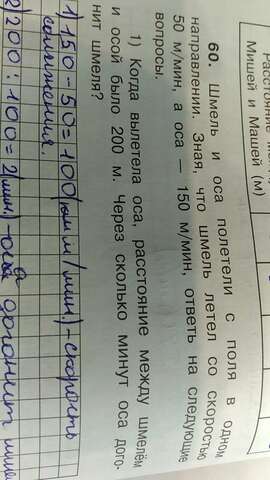 Расстояние м
Мишей и Машей (м)
60. Шмель и оса полетели с поля в одном
направлении. Зная, что шмель летел со скоростью
50 м/мин, а оса — 150 м/мин, ответь на следующие
вопросы.
1) Когда вылетела оса, расстояние между шмелём
и осой было 200 м. Через сколько минут оса дого-
нит шмеля?
1) 150-50=100 м/мин) - скорость
сближения.
2) 200:100=2(мин.) - оса догонит шме